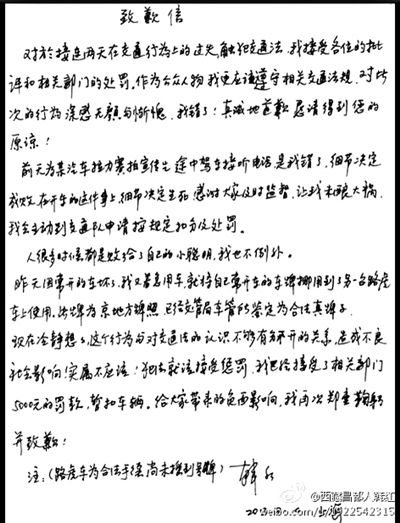 致歉信
对于接连两天在交通行为上的过失,触犯交通法,我接受各位的批
评和相关部门的处罚。作为公众人物我更应该遵守相关交通法规,对此
次的行为深感无颜与惭愧,我错了!真诚地首歉恳请得到您的
原谅!
前天为某汽车接力赛拍宣传片途中驾车接听电话是我错了,细节决定
成败在开车的这件事上细节决定生死感谢大家及时监督,让我未酿大祸,
我会主动到交通队申请按规定扣分及处罚。
人很多时候都是败给了自己的小聪明,我也不例外。
昨天因常开的车坏了,我又着急用车,就将自己常开车的车牌挪用到了另一台路虎
车上使用,此牌为京地方牌照,已经交管局车管所鉴定为合法真牌子。
现在冷静想了,这个行为与对交通法的认识不够有分不开的关系,造成不良
社会影响!实属不应该!犯法就该接受惩罚,我已经接受了相关部门
5000元的罚款,暂扣车辆。给大家带来的负面影响,我再次郑重鞠躬
并致歉!
注:(路虎车为合法手续尚未挂到号牌)
韩红
@西藏昌都人韩红
weibo.com/u/1922542315